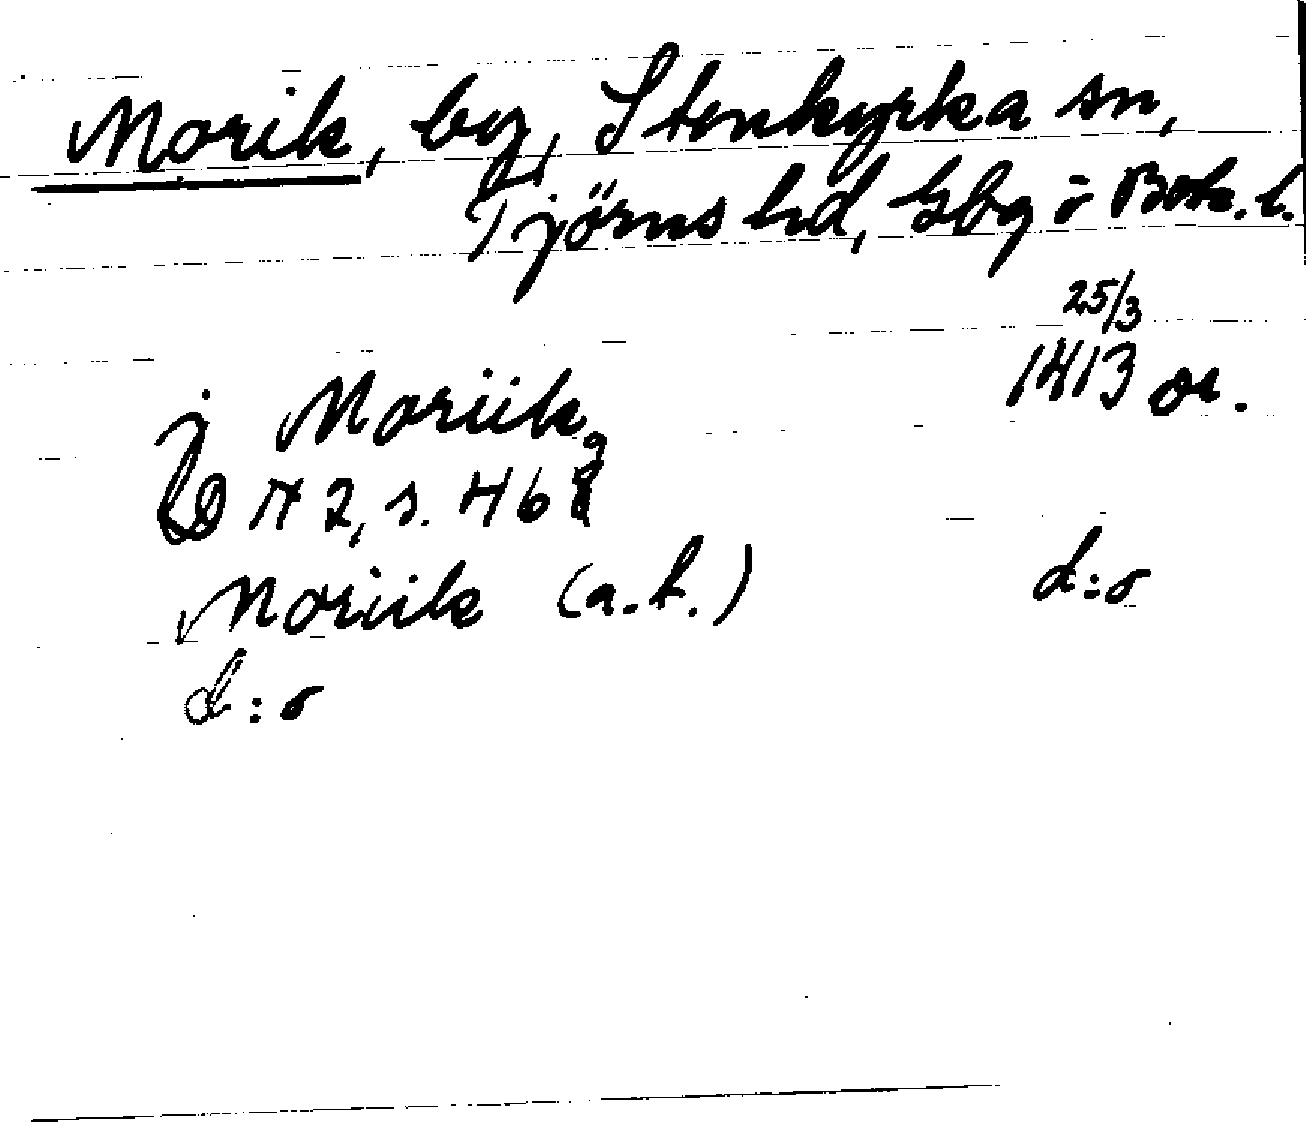 Morik, by, Stenkyrka sn,
Tjörns hd, Gbg o Boh. l.
25/3
j Moriik 1413 or.
SD N 2, s. 469
Moriik (a. h.) d:o
d:o